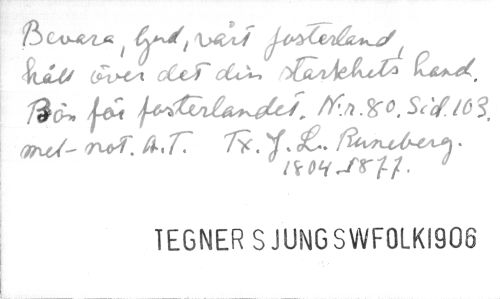 Bevara, Gud, vårt fosterland,
håll över det din starkhets hand.
Bön för fosterlandet. Nr. 80. Sid. 103.
mel-not. A.T. Tx. J. L. Runeberg.
1804-1877.
TEGNER SJUNGSWFOLK1906